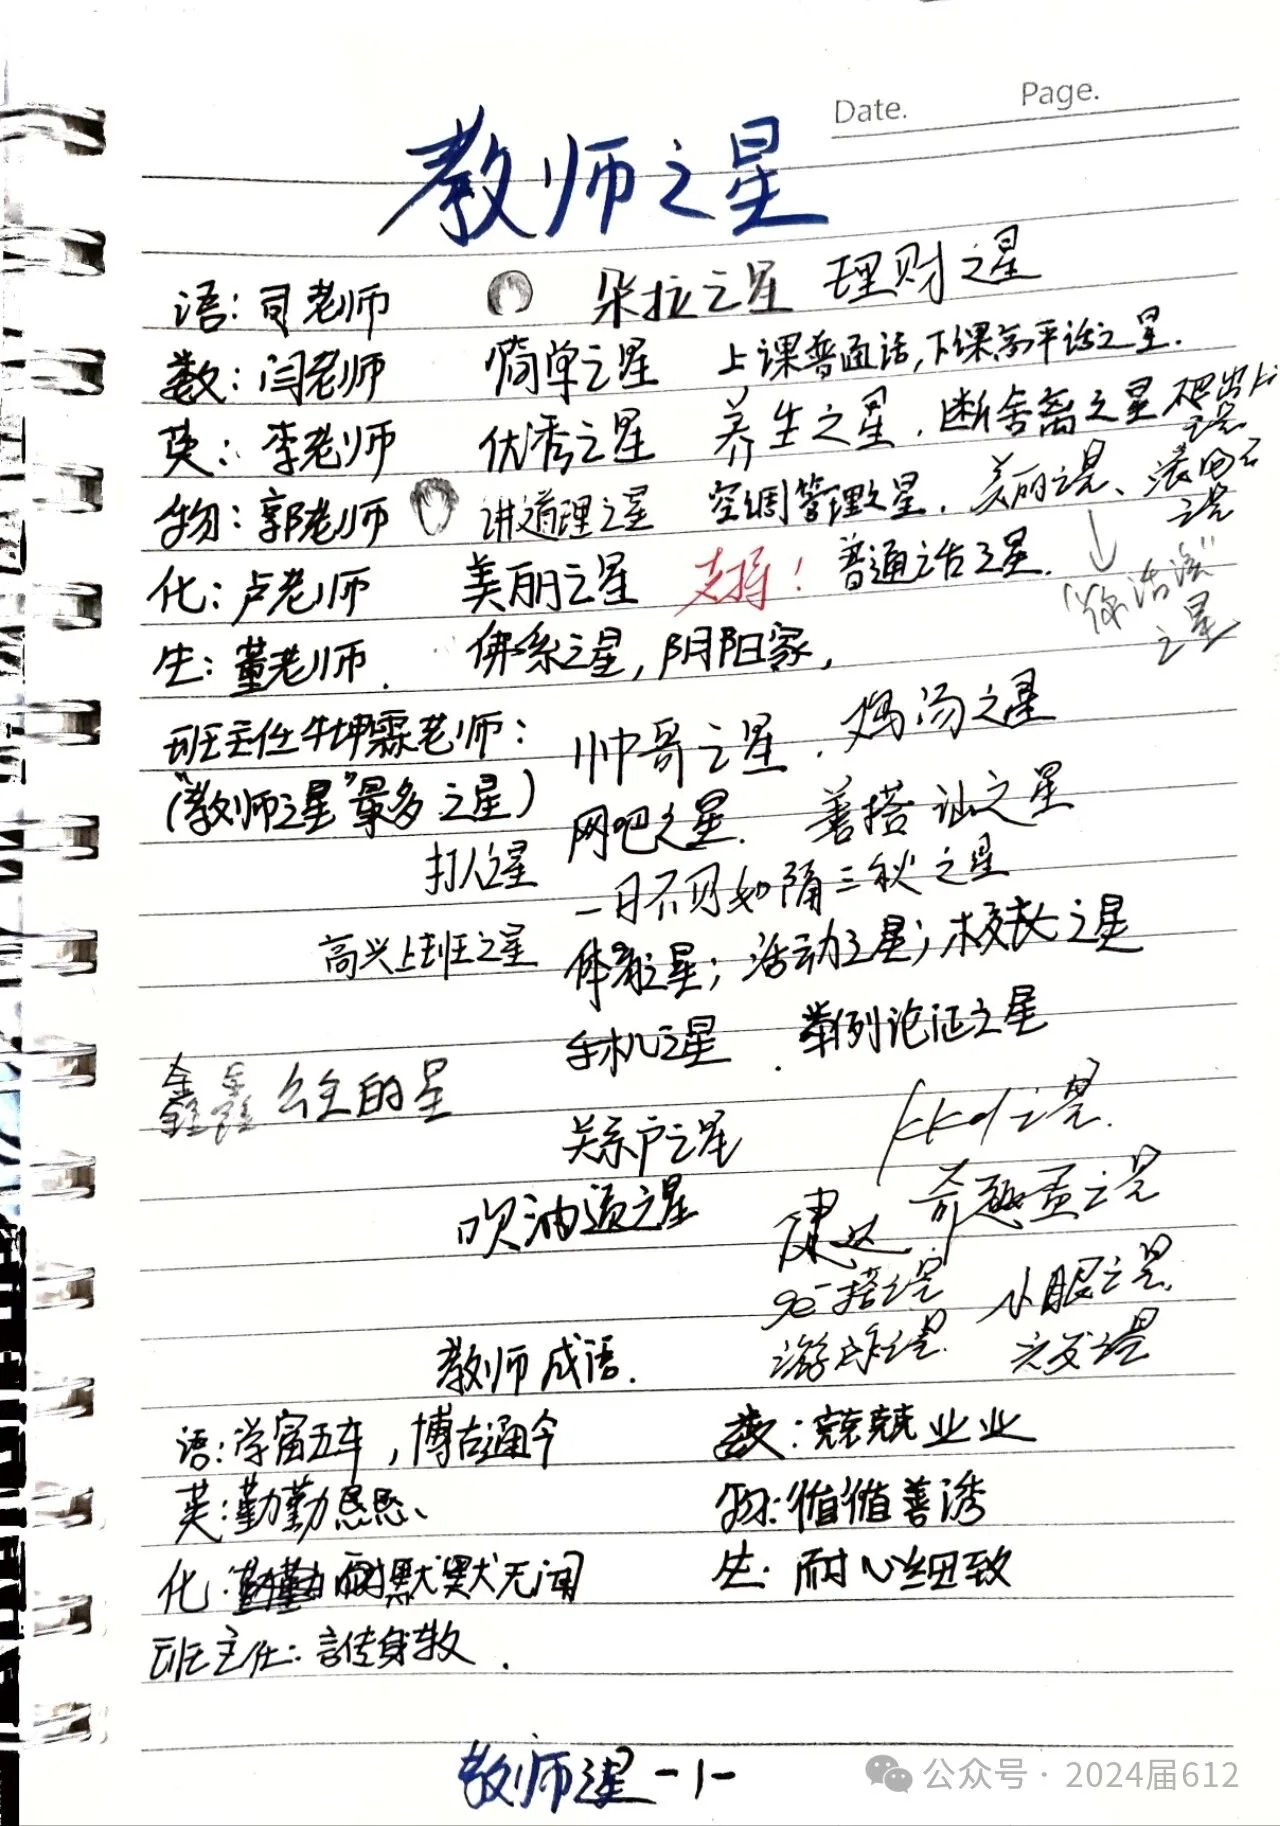 Date. Page.
教师之星
语：司老师 朵拉之星 理财之星
数：闫老师 简单之星 上课普通话，下课高平话之星.
英：李老师 优秀之星 养生之星，断舍离之星
之星
物：郭老师 讲道理之星 空调管理之星，美丽之星、滚
之星
化：卢老师 美丽之星 支持！ 普通话之星.
之星
生：董老师. 佛系之星，阴阳家，
班主任牛坤霖老师： 帅哥之星. 鸡汤之星
（"教师之星"最多之星） 网吧之星. 善搭讪之星
打人之星 一日不见如隔三秋之星
高兴上班之星 体育之星；活动之星；校长之星
手机之星. 举例论证之星
鑫鑫 公主的星
关系户之星 kkd之星.
吹油道之星 奇趣蛋之星
之星 小眼之星.
教师成语. 之星. 之星
语：学富五车，博古通今 数：兢兢业业
英：勤勤恳恳、 物：循循善诱
化：默默无闻 生：耐心细致
班主任：言传身教.
教师之星-1-
公众号·2024届612